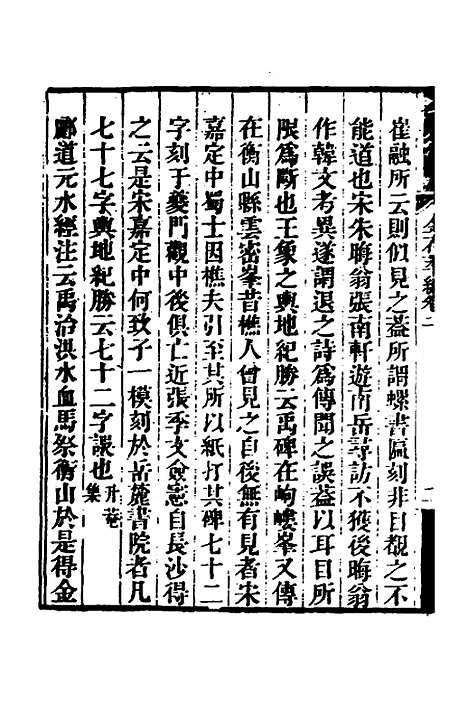 崔融所云則似見之蓋所謂螺書匾刻非目覩之不
能道也宋朱晦翁張南軒遊南岳尋訪不獲後晦翁
作韓文考異遂謂退之詩爲傳聞之誤蓋以耳目所
限爲斷也王象之輿地紀勝云禹碑在岣嶁峯又傳
在衡山縣雲密峯昔樵人曾見之自後無有見者宋
嘉定中蜀士因樵夫引至其所以紙打其碑七十二
字刻于夔門觀中後俱亡近張季文僉憲自長沙得
之云是宋嘉定中何致子一模刻於岳麓書院者凡
七十七字輿地紀勝云七十二字誤也升菴集
酈道元水經注云禹治洪水血馬祭衡山於是得金